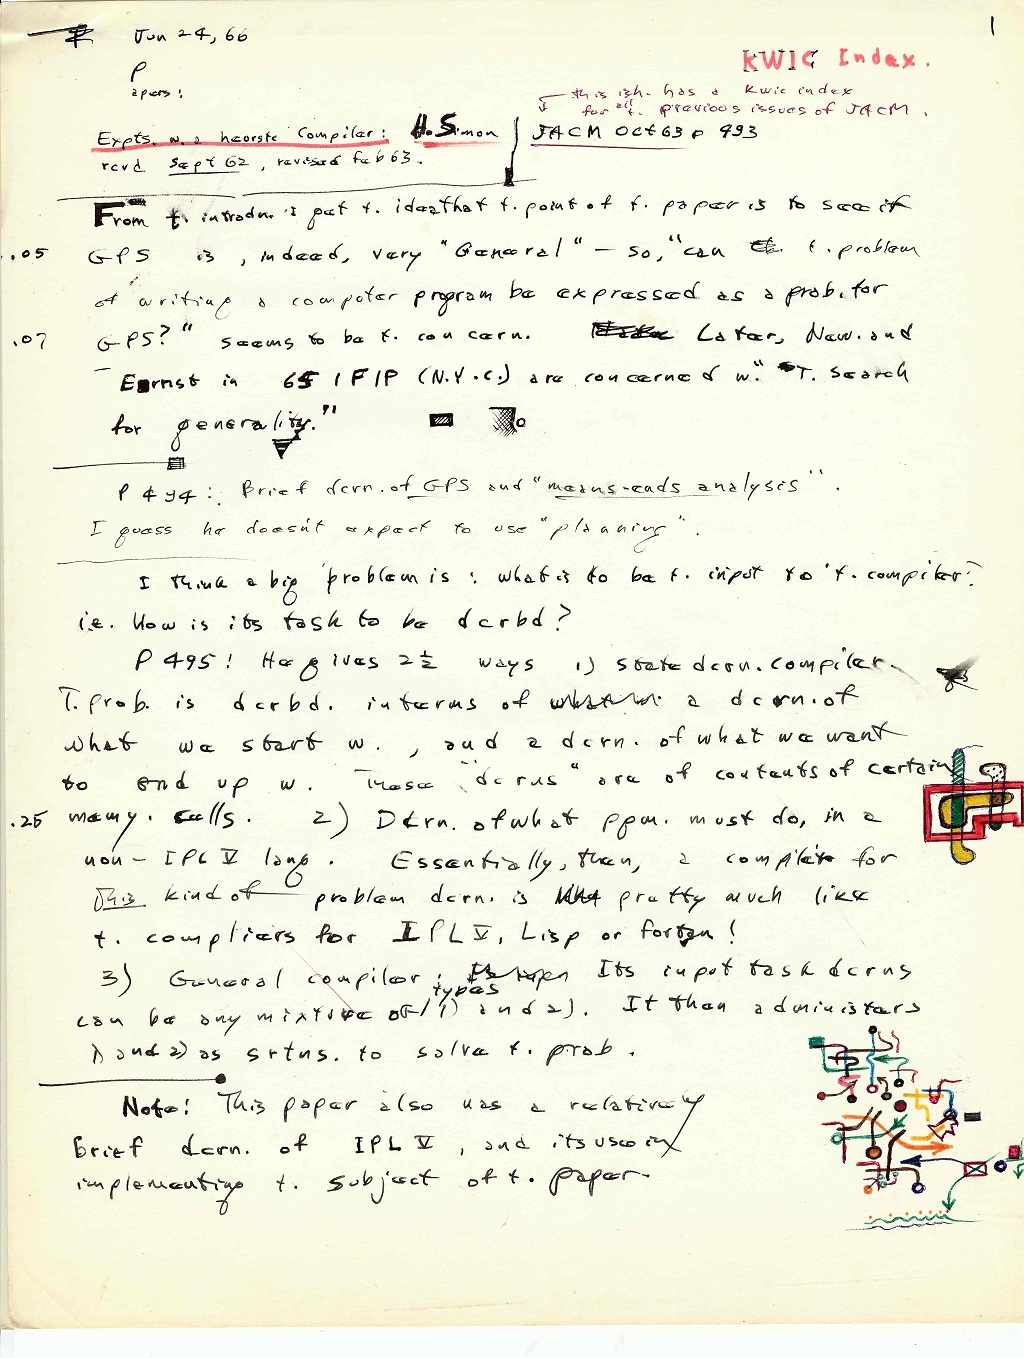 Jun 24, 66
1
P
apers:
KWIC Index.
this ish. has a Kwic index
for all t. previous issues of JACM.
Expts. w. a heorstc Compiler: H. Simon
JACM Oct 63 p 493
rcvd Sept 62, revised Feb 63.
From t. introdn. I get t. idea that t. point of t. paper is to see if
.05 GPS is, indeed, very "General" — so, "can t. problem
of writing a computer program be expressed as a prob. for
.07 GPS?" seems to be t. concern. Later, New. and
Ernst in 65 IFIP (N.Y.C.) are concerned w. "T. Search
for generality."
P 494: Brief dcrn. of GPS and "means-ends analysis".
I guess he doesn't expect to use "planning".
I think a big problem is: what is to be t. input to t. compiler?
i.e. How is its task to be dcrbd?
P 495! He gives 2½ ways 1) state dcrn. compiler.
T. prob. is dcrbd. in terms of a dcrn. of
what we start w., and a dcrn. of what we want
to end up w. These "dcrns" are of contents of certain
.25 memy. cells. 2) Dcrn. of what pgm. must do, in a
non-IPL V lang. Essentially, then, a compiler for
This kind of problem dcrn. is pretty much like
t. compliers for IPL V, Lisp or fortan!
3) General compiler: Its input task dcrns
types
can be any mixture of 1) and 2). It then administers
1) and 2) as srtns. to solve t. prob.
Note! This paper also has a relatively
Brief dcrn. of IPL V, and its use in
implementing t. subject of t. paper.